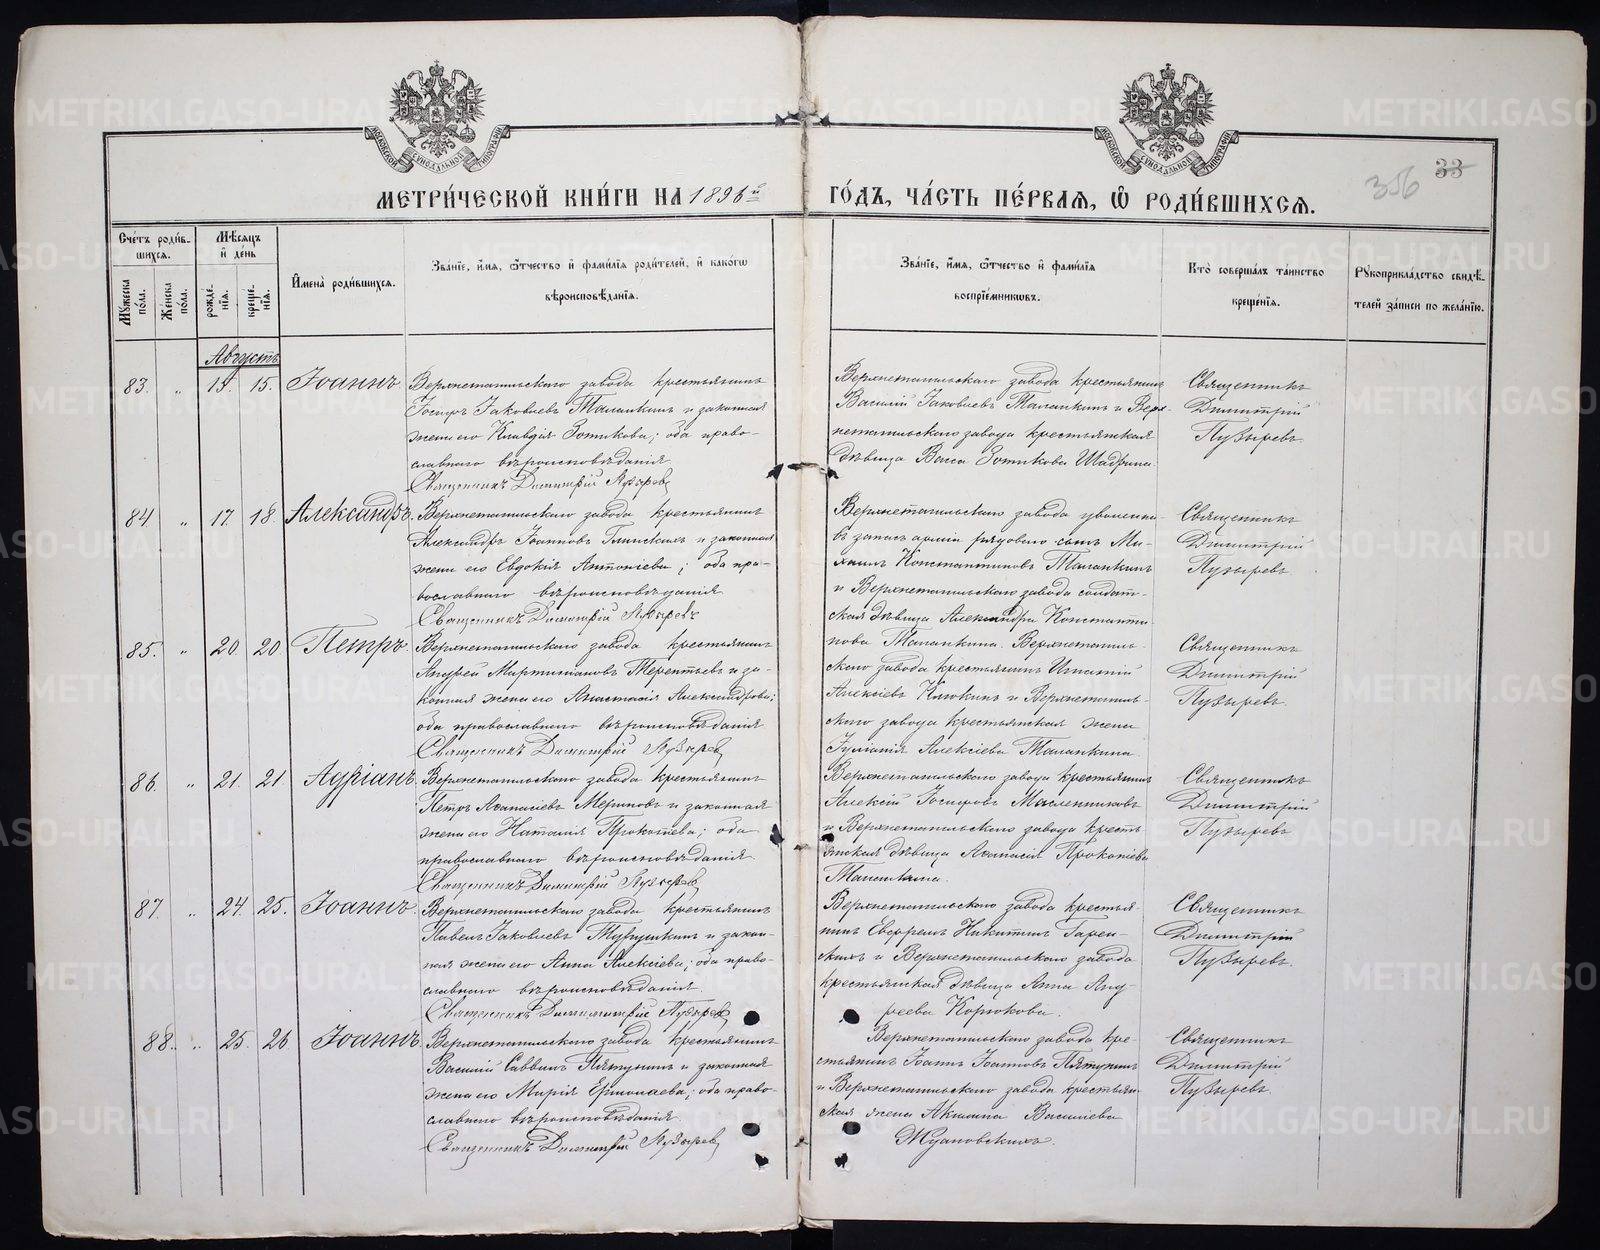 МОСКОВСКОЙ СѴНОДАЛЬНОЙ ТИПОГРАФІИ
МОСКОВСКОЙ СѴНОДАЛЬНОЙ ТИПОГРАФІИ
356 33
МЕТРИ́ЧЕСКОЙ КНИ́ГИ НА 1896й ГО́ДЪ, ЧА́СТЬ ПЕ́РВАЯ, Ѡ҆ РОДИ́ВШИХСЯ.
Сче́тъ роди́в-
шихся.
Мѣ́сяцъ
и҆ де́нь
Мꙋжеска по́ла.
Женска по́ла.
рожде́-
нїя.
креще́-
нїя.
И҆мена̀ роди́вшихся.
Зва́нїе, и҆́мя, ѻ҆́тчество и҆ фами́лїя роди́телей, и҆ како́гѡ
вѣроисповѣ́данїя.
Зва́нїе, и҆́мя, ѻ҆́тчество и҆ фами́лїя
воспрїе́мниковъ.
Кто̀ соверша́лъ та́инство
креще́нїя.
Рꙋкоприкла́дство свидѣ́-
телей за́писи по жела́нїю.
Августъ
83. „ 15. 15. Іоаннъ
Верхнетагильскаго завода крестьянинъ
Іосифъ Іаковлевъ Талапкинъ и законная
жена его Клавдія Зотикова; оба право-
славнаго вѣроисповѣданія.
Священникъ Димитрій Пузыревъ
Верхнетагильскаго завода крестьянинъ
Василій Іаковлевъ Талапкинъ и Верх-
нетагильскаго завода крестьянская
дѣвица Васса Зотикова Шадрина.
Священникъ
Димитрій
Пузыревъ.
84 „ 17. 18. Александръ.
Верхнетагильскаго завода крестьянинъ
Александръ Іоанновъ Глинскихъ и законная
жена его Евдокія Антоніева; оба пра-
вославнаго вѣроисповѣданія
Священникъ Димитрій Пузыревъ
Верхнетагильскаго завода уволенна-
въ запасъ арміи рядоваго сынъ Ми-
хаилъ Константиновъ Талапкинъ
и Верхнетагильскаго завода солдат-
ская дѣвица Александра Константи-
нова Талапкина.
Священникъ
Димитрій
Пузыревъ.
85. „ 20 20 Петръ.
Верхнетагильскаго завода крестьянинъ
Андрей Мартиніановъ Терентьевъ и за-
конная жена его Анастасія Александрова;
оба православнаго вѣроисповѣданія
Священникъ Димитрій Пузыревъ
Верхнетагиль-
скаго завода крестьянинъ Игнатій
Алексіевъ Клюкинъ и Верхнетагиль-
скаго завода крестьянская жена
Іуліанія Алексіева Талапкина
Священникъ
Димитрій
Пузыревъ.
86. „ 21. 21. Адріанъ.
Верхнетагильскаго завода крестьянинъ
Петръ Аѳанасіевъ Мериновъ и законная
жена его Наталія Прокопіева; оба
православнаго вѣроисповѣданія.
Священникъ Димитрій Пузыревъ
Верхнетагильскаго завода крестьянинъ
Алексій Іосифовъ Масленниковъ
и Верхнетагильскаго завода кресть
янская дѣвица Аѳанасія Прокопіева
Талапкина.
Священникъ
Димитрій
Пузыревъ.
87. „ 24. 25. Іоаннъ.
Верхнетагильскаго завода крестьянинъ
Павелъ Іаковлевъ и закон-
ная жена его Анна Алексіева; оба право-
славнаго вѣроисповѣданія.
Священникъ Димитрій Пузыревъ
Верхнетагильскаго завода крестья-
нинъ Евфремъ Никитинъ
и Верхнетагильскаго завода
крестьянская дѣвица Анна Анд-
реева Корюкова.
Священникъ
Димитрій
Пузыревъ.
88. „ 25. 26 Іоаннъ.
Верхнетагильскаго завода крестьянинъ
Василій Саввинъ Пятунинъ и законная
жена его Марія Ермолаева; оба право-
славнаго вѣроисповѣданія.
Священникъ Димитрій Пузыревъ
Верхнетагильскаго завода кре-
стьянинъ Іоаннъ Іоанновъ Пятунинъ
и Верхнетагильскаго завода крестьян-
ская жена Акилина Василіева
Ждановскихъ.
Священникъ
Димитрій
Пузыревъ.
METRIKI.GASO-URAL.RU